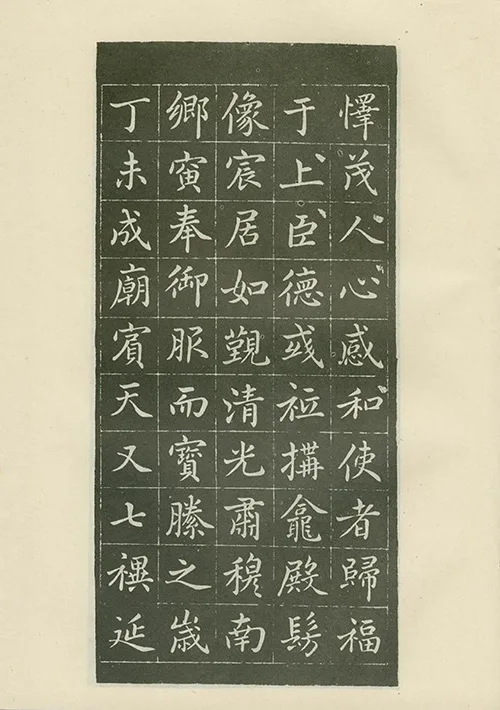 懌茂人心感和使者歸福
于上臣德彧祗搆龕殿髣
像宸居如覲清光肅穆南
鄉寅奉御服而寶縢之嵗
丁未成廟賓天又七禩延